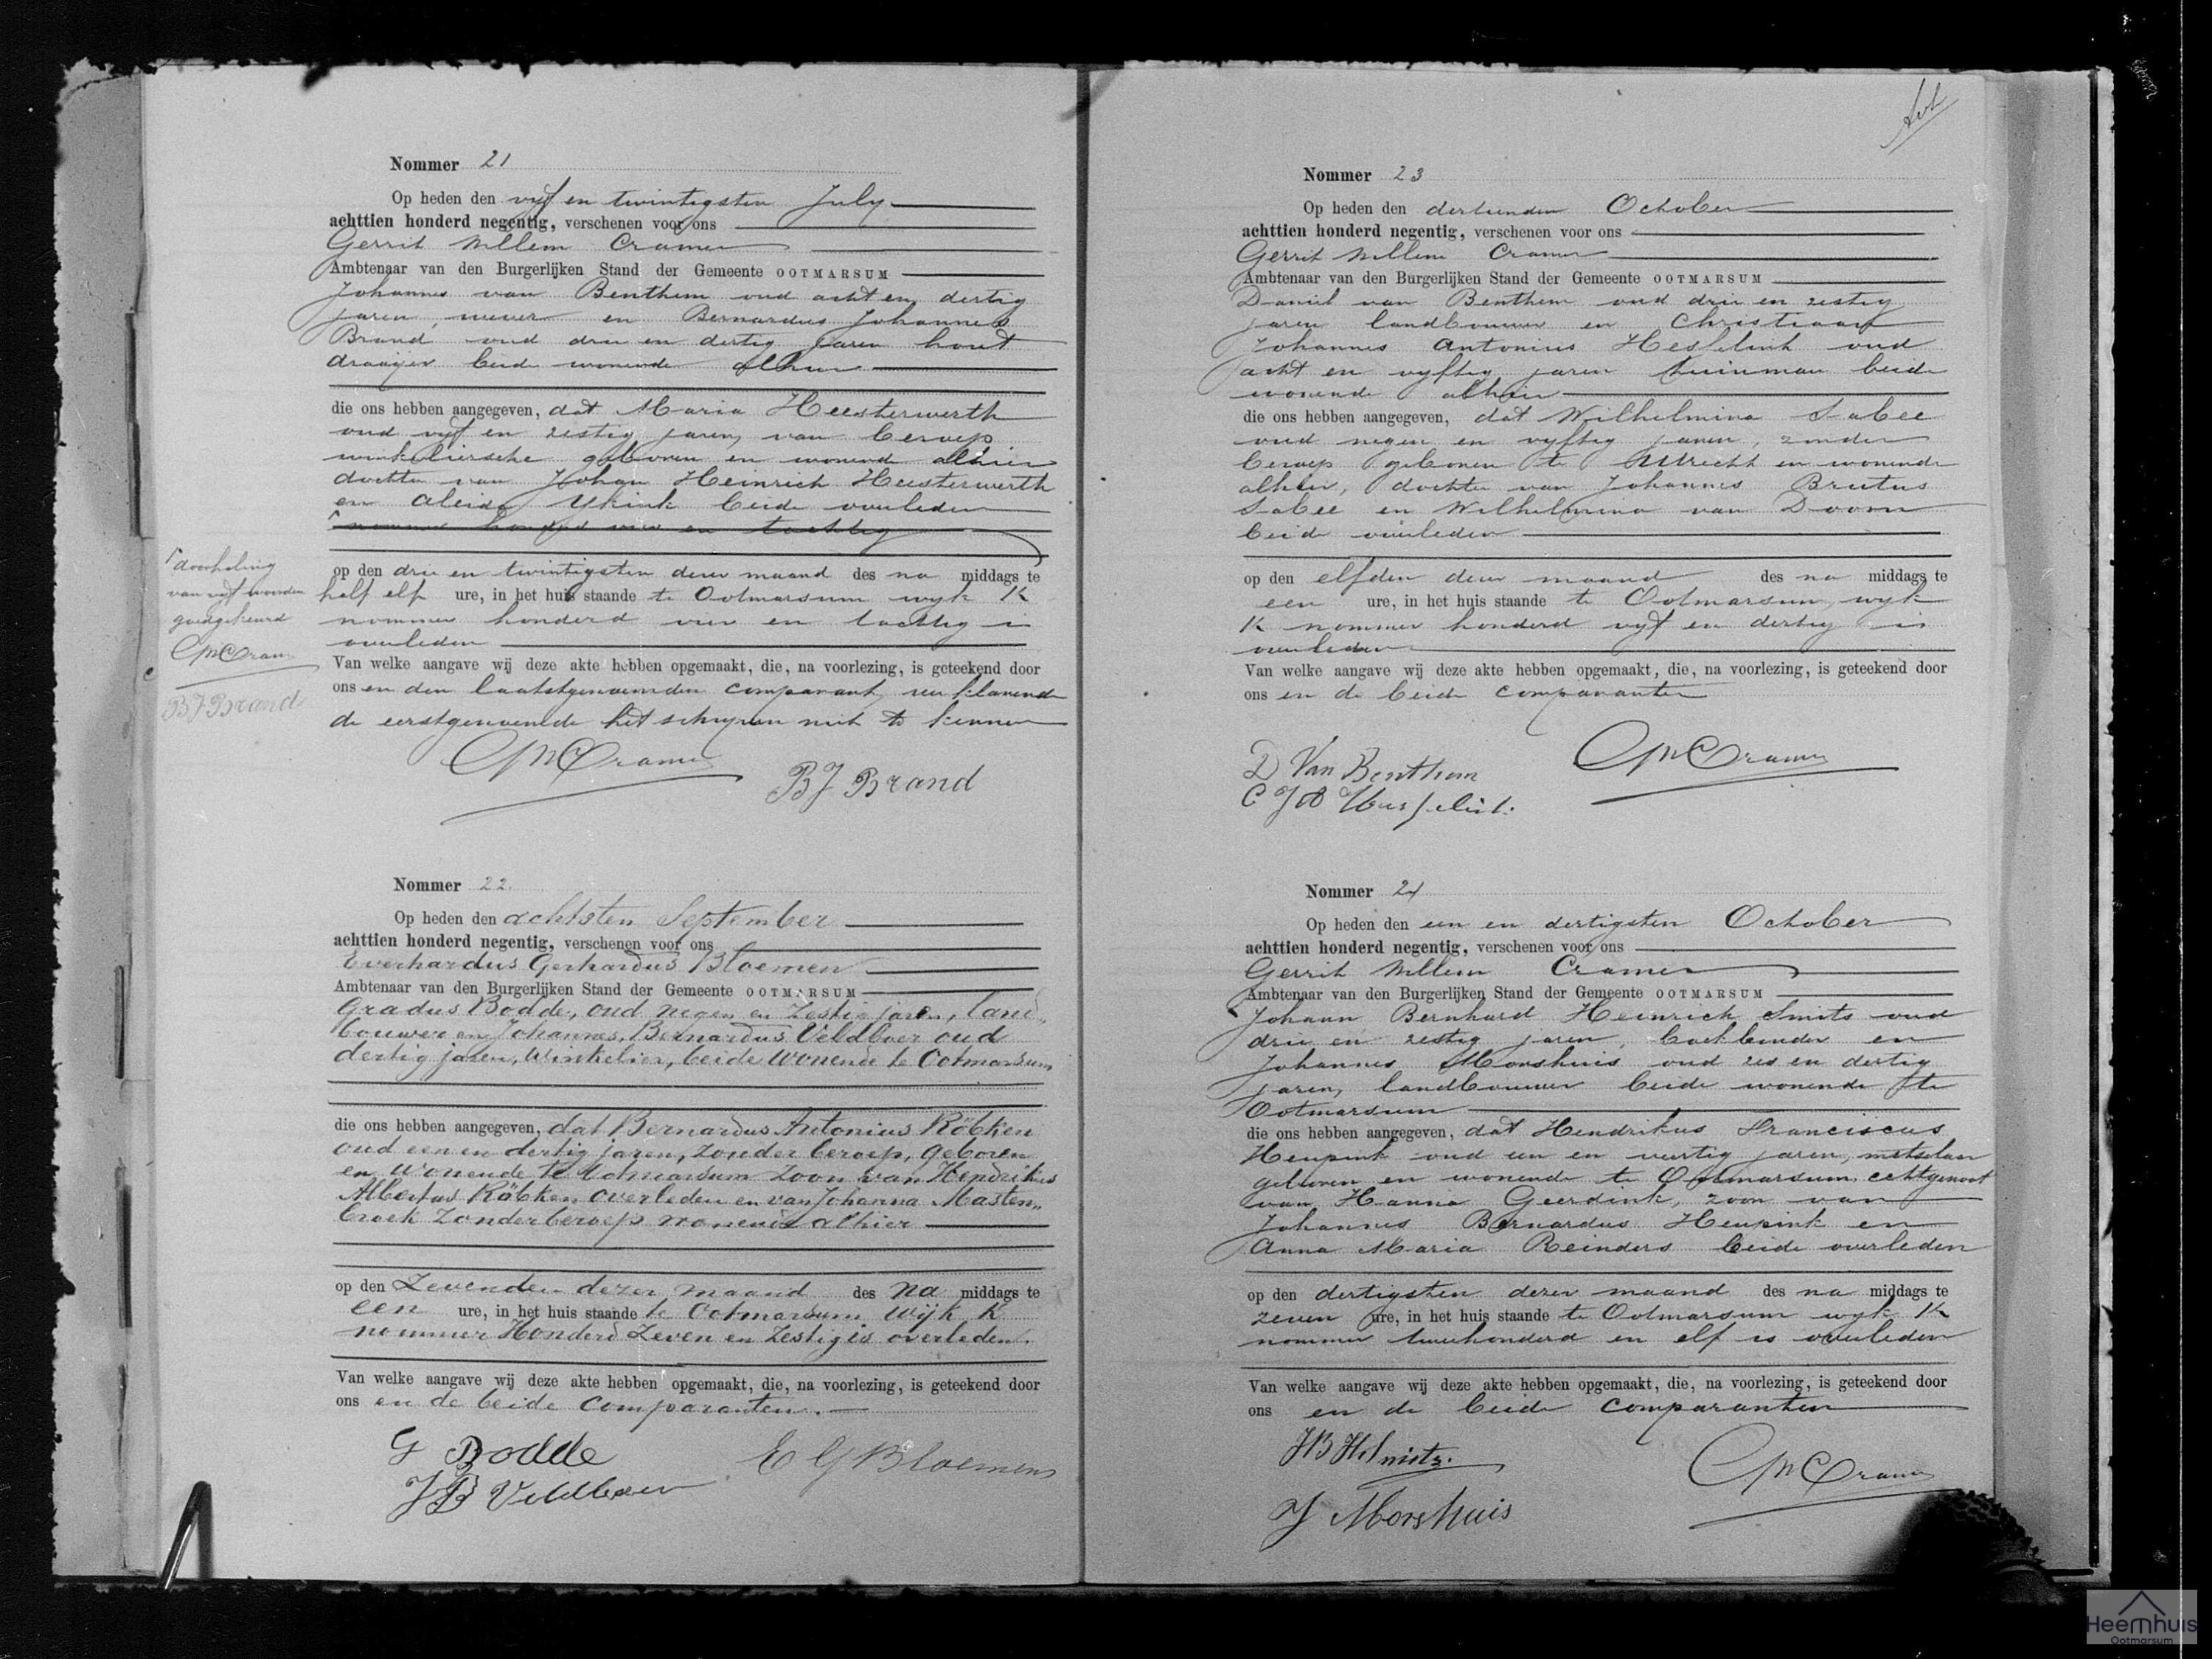 Nommer 21
Op heden den vijf en twintigsten July
achttien honderd negentig, verschenen voor ons
Gerrit Willem Cramer
Ambtenaar van den Burgerlijken Stand der Gemeente OOTMARSUM
Johannes van Benthem oud acht en dertig
jaren, wever en Bernardus Johannes
Brand oud drie en dertig jaren hout
draaijer beide wonende alhier
die ons hebben aangegeven, dat Maria Heesterwerth
oud vijf en zestig jaren, van beroep
winkeliersche geboren en wonend alhier
dochter van Johan Heinrich Heesterwerth
en Aleida Ykink beide overleden
nommer honderd vier en tachtig
op den drie en twintigsten dezer maand des na middags te
half elf ure, in het huis staande te Ootmarsum wijk K
nommer honderd vier en tachtig is
overleden
Van welke aangave wij deze akte hebben opgemaakt, die, na voorlezing, is geteekend door
ons en den laatstgenoemden comparant, verklarende
de eerstgenoemde het schrijven niet te kennen
GWCramer
BJ Brand
doorhaling
van vijf woorden
goedgekeurd
GWCram
BJ Brand
Nommer 22.
Op heden den achtsten September
achttien honderd negentig, verschenen voor ons
Everhardus Gerhardus Bloemen
Ambtenaar van den Burgerlijken Stand der Gemeente OOTMARSUM
Gradus Bodde, oud negen en zestig jaren, land„
bouwer en Johannes Bernardus Veldboer oud
dertig jaren, winkelier, beide wonende te Ootmarsum
die ons hebben aangegeven, dat Bernardus Antonius Röbken
oud een en dertig jaren, zonder beroep, geboren
en wonende te Ootmarsum zoon van Hendrikus
Albertus Röbken overleden en van Johanna Masten„
broek zonder beroep wonende alhier
op den Zevenden dezer maand des na middags te
een ure, in het huis staande te Ootmarsum Wijk K
nommer Honderd Zeven en Zestig is overleden.
Van welke aangave wij deze akte hebben opgemaakt, die, na voorlezing, is geteekend door
ons en de beide Comparanten.
G Bodde
E G Bloemen
JB Veldboer
Nommer 23
Op heden den dertienden October
achttien honderd negentig, verschenen voor ons
Gerrit Willem Cramer
Ambtenaar van den Burgerlijken Stand der Gemeente OOTMARSUM
Daniel van Benthem oud drie en zestig
jaren landbouwer en Christiaan
Johannes Antonius Hesselink oud
acht en vijftig jaren tuinman beide
wonende alhier
die ons hebben aangegeven, dat Wilhelmina Sabee
oud negen en vijftig jaren, zonder
beroep geboren te Utrecht en wonende
alhier, dochter van Johannes Brutus
Sabee en Wilhelmina van Doorn
beide overleden
op den elfden dezer maand des na middags te
een ure, in het huis staande te Ootmarsum, wijk
K nommer honderd vijf en dertig is
overleden
Van welke aangave wij deze akte hebben opgemaakt, die, na voorlezing, is geteekend door
ons en de beide comparanten
D Van Benthem
GWCramer
Nommer 24
Op heden den een en dertigsten October
achttien honderd negentig, verschenen voor ons
Gerrit Willem Cramer
Ambtenaar van den Burgerlijken Stand der Gemeente OOTMARSUM
Johann Bernhard Heinrich Smits oud
drie en zestig jaren, boekbinder en
Johannes Morshuis oud zes en dertig
jaren, landbouwer beide wonende te
Ootmarsum
die ons hebben aangegeven, dat Hendrikus Franciscus
Heupink oud een en veertig jaren, metselaar
geboren en wonende te Ootmarsum, echtgenoot
van Hanna Geerdink, zoon van
Johannes Bernardus Heupink en
Anna Maria Reinders beide overleden
op den dertigsten dezer maand des na middags te
zeven ure, in het huis staande te Ootmarsum wijk K
nommer tweehonderd en elf is overleden
Van welke aangave wij deze akte hebben opgemaakt, die, na voorlezing, is geteekend door
ons en de beide comparanten
GWCramer
J Morshuis
Heemhuis
Ootmarsum